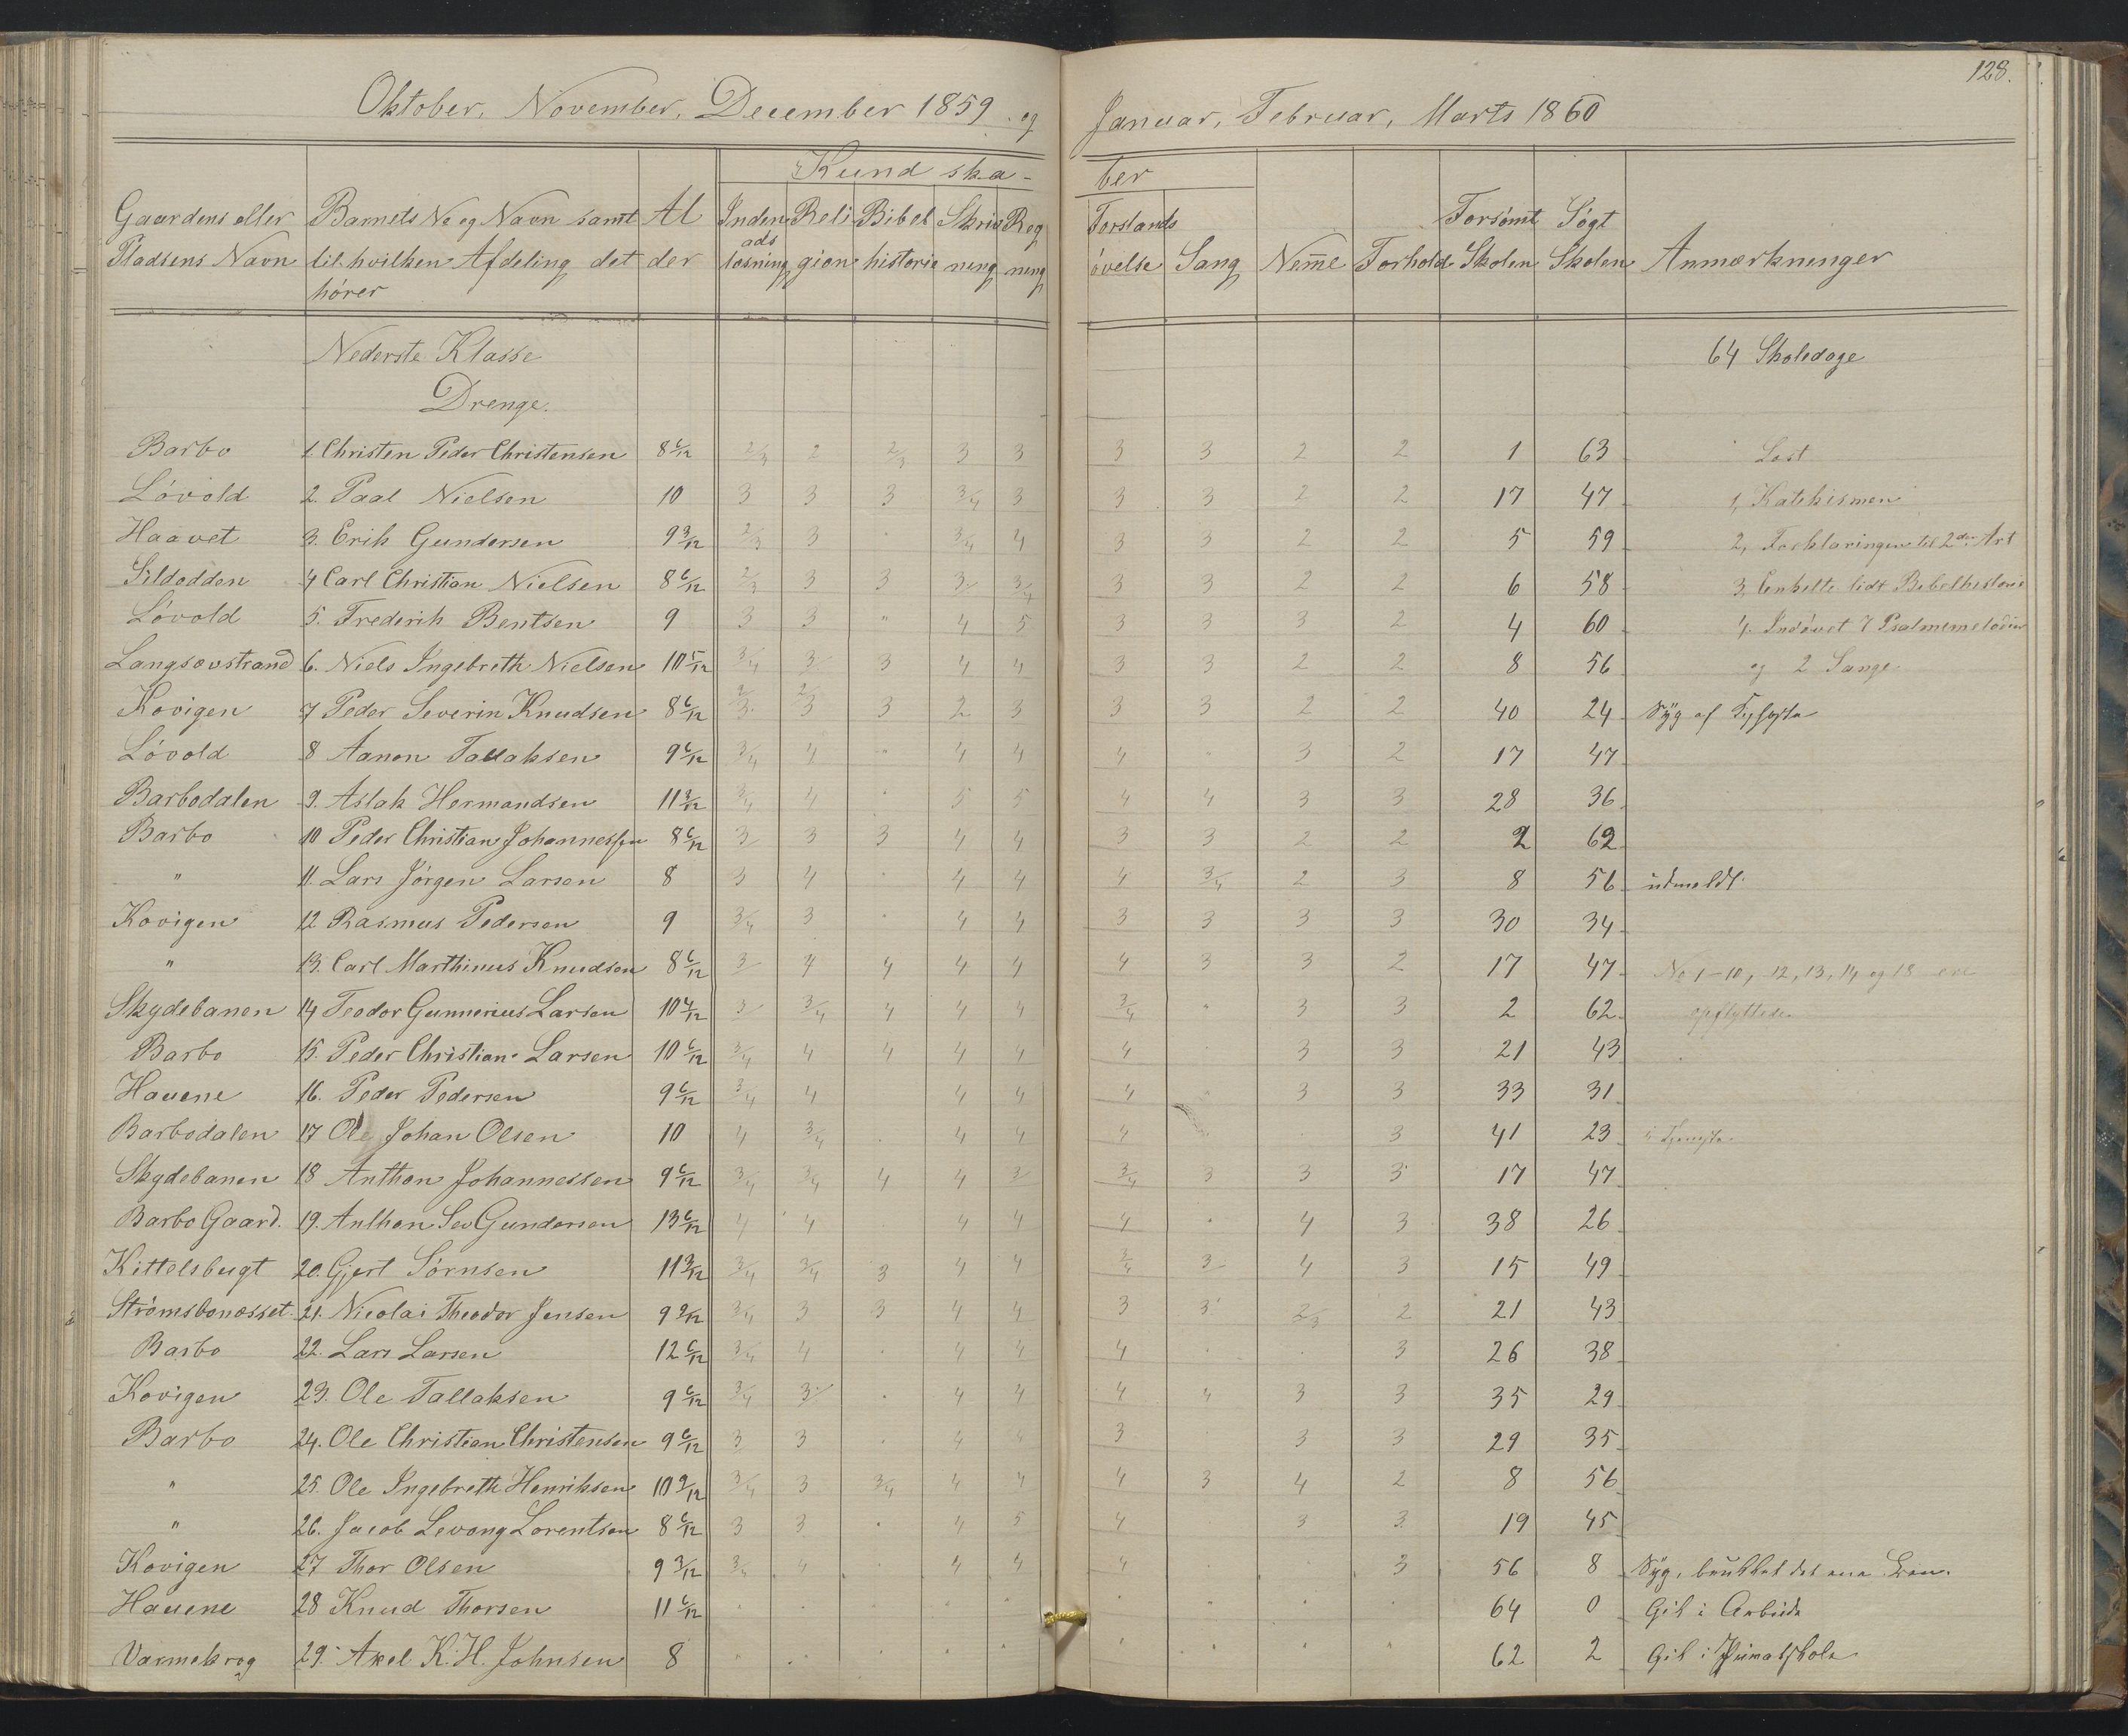 128.
Oktober, November, December 1859. og Januar, Februar, Marts 1860
Kundska- ber
Gaardens eller Pladsens Navn | Barnets No og Navn samt til hvilken Afdeling det hører | Al der | Inden ads læsning | Reli gion | Bibel historie | Skriv ning | Reg ning | Forstands øvelse | Sang | Nemme | Forhold | Forsømt Skolen | Søgt Skolen | Anmærkninger
Nederste Klasse 64 Skoledage
Drenge.
Barbo 1. Christen Peder Christensen 8 6/12 2/3 2 2/3 3 3 3 3 2 2 1 63 Læst
Lövold 2. Paal Nielsen 10 3 3 3 3/4 3 3 3 2 2 17 47 1, Katekismen
Haavet 3. Erik Gundersen 9 3/12 2/3 3 . 3/4 4 3 3 2 2 5 59 2, Forklaringen til 2den Art
Sildodden 4 Carl Christian Nielsen 8 6/12 2/3 3 3 3 3/4 3 3 2 2 6 58 3, Enkelte lidt Bibelhistorie
Lövold 5. Frederik Bentsen 9 3 3 " 4 5 3 3 3 2 4 60 4. Indøvet 7 Psalmemelodier
Langsævstrand 6. Niels Ingebreth Nielsen 10 5/12 3/4 3 3 4 4 3 3 2 2 8 56 og 2 Sange
Kovigen 7 Peder Severin Knudsen 8 6/12 2/3 2/3 3 2 3 3 3 2 2 40 24 Syg af
Lövold 8 Aanon Tallaksen 9 6/12 3/4 4 " 4 4 4 . 3 2 17 47
Barbodalen 9. Aslak Hermandsen 11 3/12 3/4 4 . 5 5 4 4 3 3 28 36
Barbo 10 Peder Christian Johannessen 8 6/12 3 3 3 4 4 3 3 2 2 2 62
" 11. Lars Jörgen Larsen 8 3 4 . 4 4 4 3/4 2 3 8 56 udmeldt.
Kovigen 12. Rasmus Pedersen 9 3/4 3 . 4 4 3 3 3 3 30 34
" 13. Carl Marthinus Knudsen 8 6/12 3 4 4 4 4 4 3 3 2 17 47 No 1-10, 12, 13, 14 og 18 ere
Skydebanen 14 Teodor Gunnerius Larsen 10 4/12 3 3/4 4 4 4 3/4 " 3 3 2 62 opflyttede
Barbo 15. Peder Christian Larsen 10 6/12 3/4 4 4 4 4 4 . 3 3 21 43
Hauene 16. Peder Pedersen 9 6/12 3/4 4 4 4 4 . 3 3 33 31
Barbodalen 17 Ole Johan Olsen 10 4 3/4 . 4 4 4 . 3 41 23 i Tjeneste
Skydebanen 18 Anthon Johannessen 9 6/12 3/4 3/4 4 4 3 3/4 3 3 3 17 47
Barbo Gaard. 19. Anthon Sev Gundersen 13 6/12 4 4 4 4 4 . 4 3 38 26
Kittelsbugt 20. Gjert Sörnsen 11 3/12 3/4 3/4 3 4 4 3/4 3 4 3 15 49
Strömsbonæsset 21. Nicolai Theodor Jensen 9 9/12 3/4 3 3 4 4 3 3 2/3 2 21 43
Barbo 22. Lars Larsen 12 6/12 3/4 4 . 4 4 4 . . 3 26 38
Kovigen 23. Ole Tallaksen 9 6/12 3/4 3 . 4 4 4 4 3 3 35 29
Barbo 24. Ole Christian Christensen 9 6/12 3 3 . 4 4 3 3 3 29 35
" 25. Ole Ingebreth Henriksen 10 9/12 3/4 3 3/4 4 4 4 3 4 2 8 56
" 26. Jacob Levang Lorentsen 8 6/12 3 3 . 4 5 4 3 3 19 45
Kovigen 27 Thor Olsen 9 3/12 3/4 4 . 4 4 4 . . 3 56 8 Syg, brukket det ene Been.
Hauene 28 Knud Thorsen 11 6/12 . . . . . . . . . 64 0 Gik i Arbeide
Varmekrog 29. Axel K. H. Johnsen 8 . . . . . . . . " 62 2 Gik i Privatskole